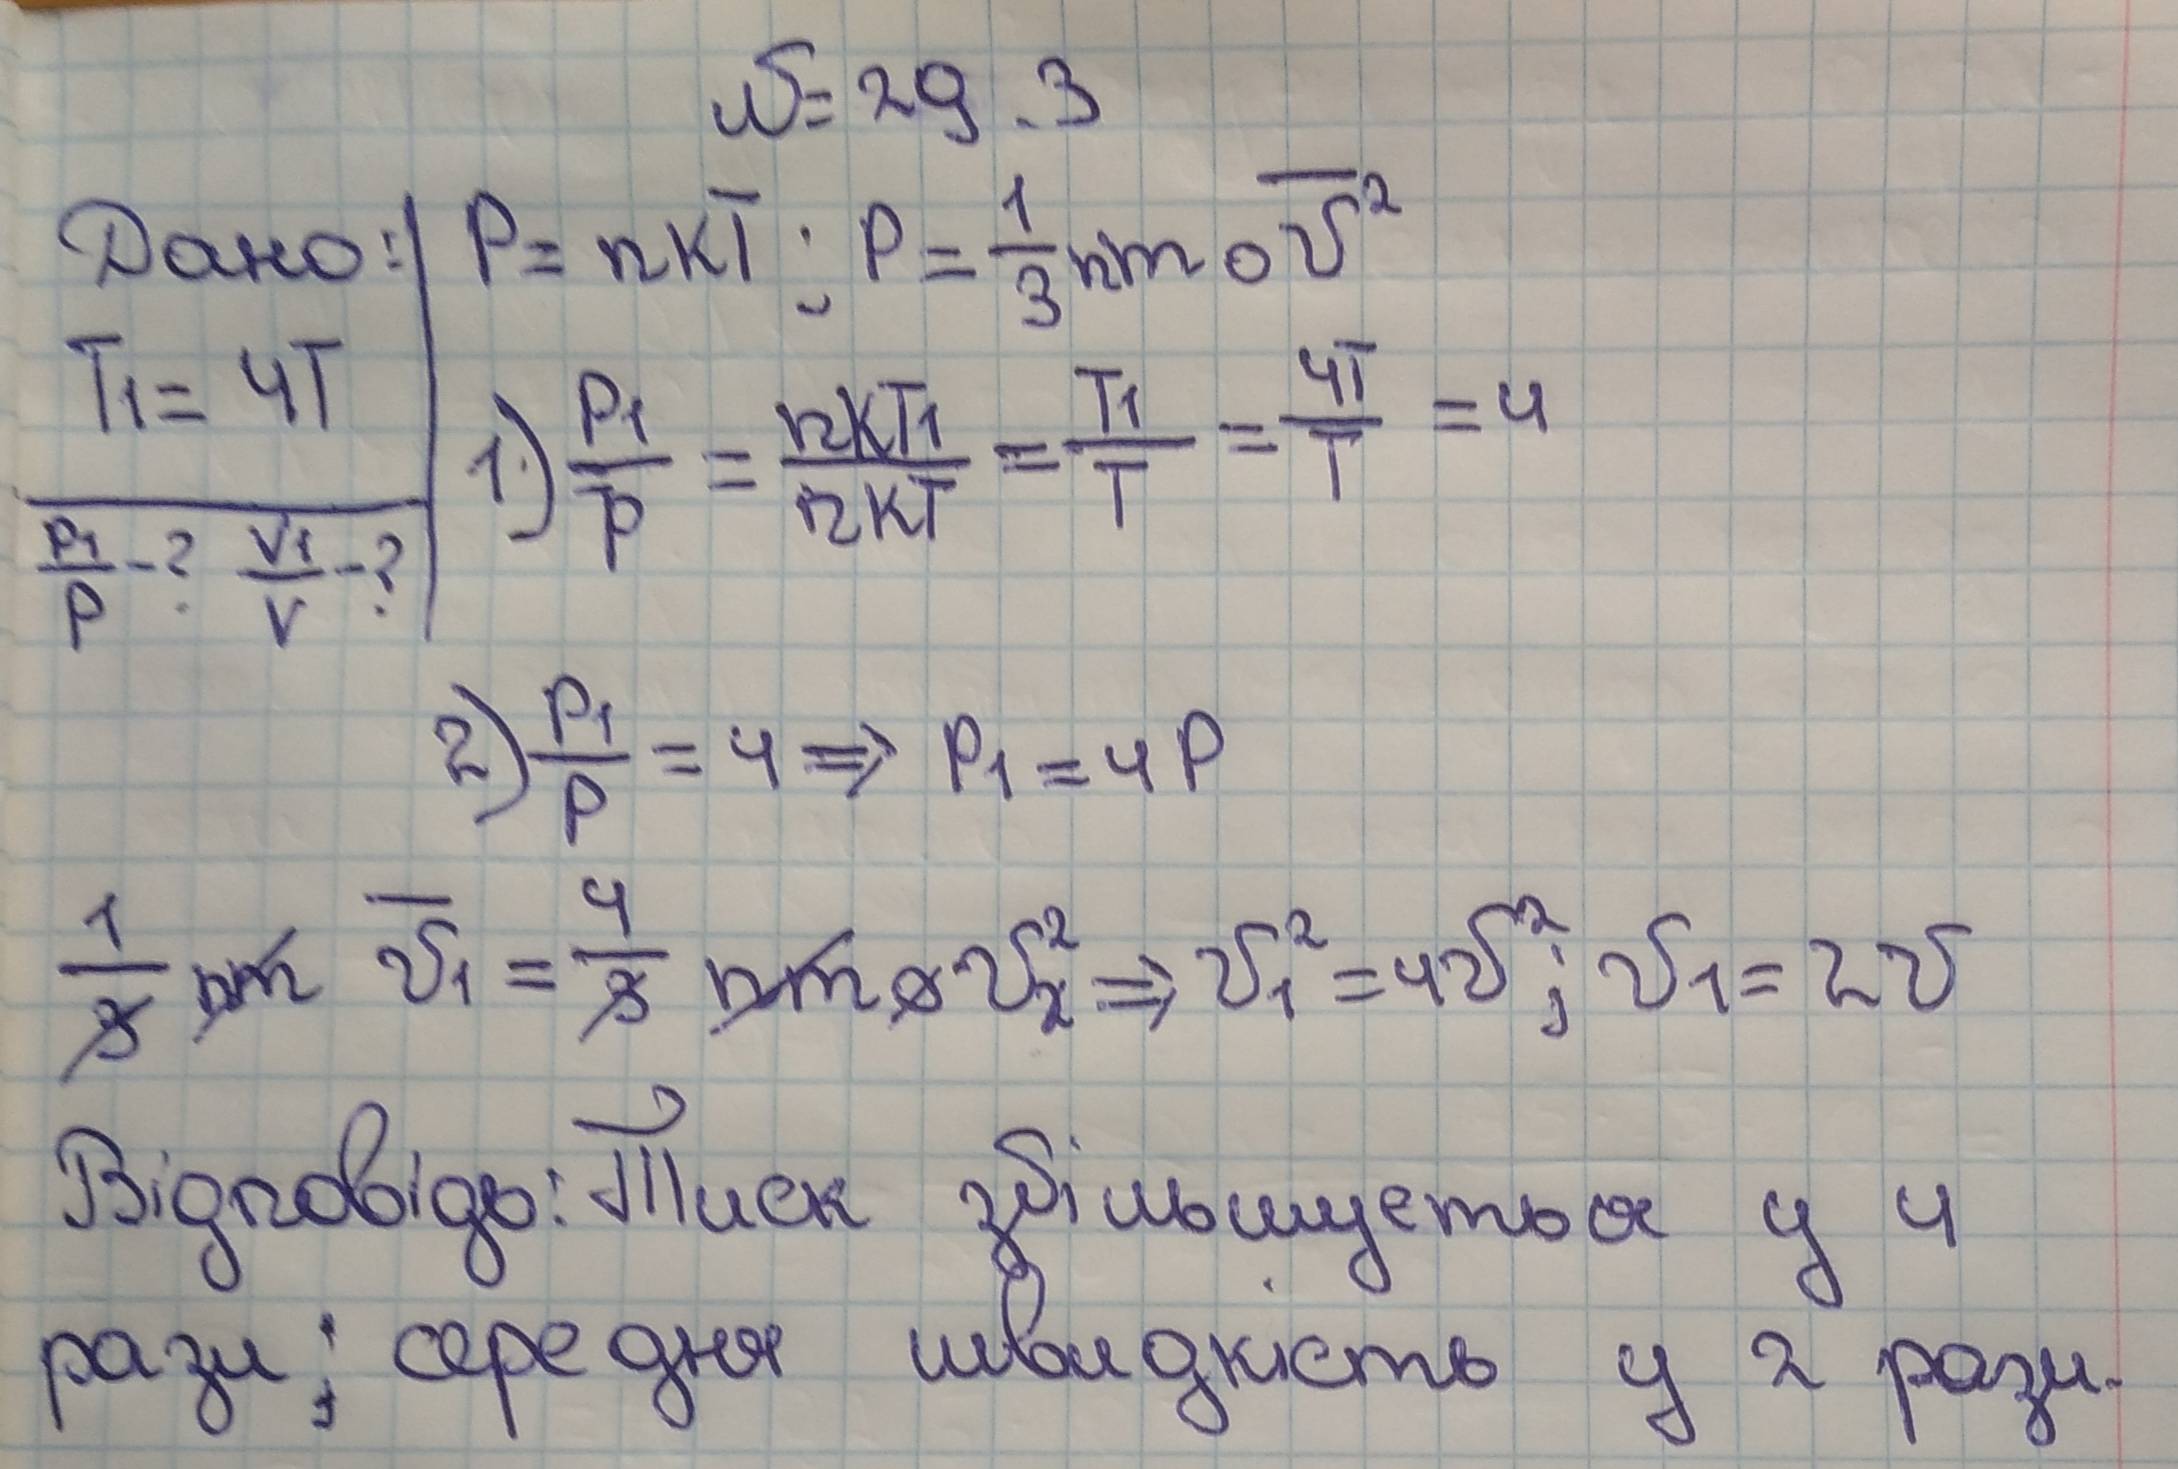 № 29.3
Дано: P = nkT ; P = 1/3 nm₀v̅²
T₁ = 4T
P₁/P - ? V₁/V - ?
1) P₁/P = nkT₁/nkT = T₁/T = 4T/T = 4
2) P₁/P = 4 => P₁ = 4P
1/3 nm v̅₁ = 4/3 nm₀v₂² => v₁² = 4v²; v₁ = 2v
Відповідь: Тиск збільшується у 4
рази; середня швидкість у 2 рази.